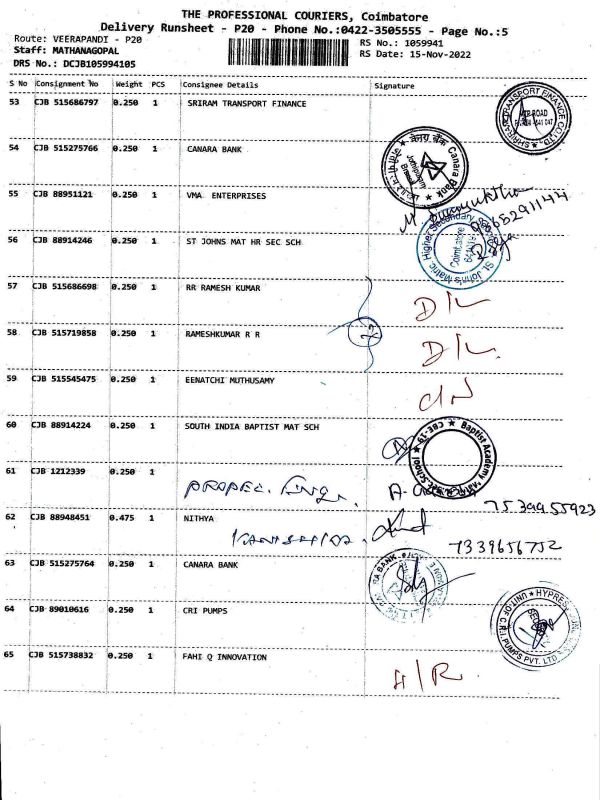 THE PROFESSIONAL COURIERS, Coimbatore
Delivery Runsheet - P20 - Phone No.:0422-3505555 - Page No.:5
Route: VEERAPANDI - P20
Staff: MATHANAGOPAL
DRS No.: DCJB105994105
RS No.: 1059941
RS Date: 15-Nov-2022
S No Consignment No Weight PCS Consignee Details Signature
53 CJB 515686797 0.250 1 SRIRAM TRANSPORT FINANCE
54 CJB 515275766 0.250 1 CANARA BANK
Canara Bank
55 CJB 88951121 0.250 1 VMA ENTERPRISES
56 CJB 88914246 0.250 1 ST JOHNS MAT HR SEC SCH
St. John's Matric. Higher Secondary
Coimbatore
57 CJB 515686698 0.250 1 RR RAMESH KUMAR D/L
58 CJB 515719858 0.250 1 RAMESHKUMAR R R D/L
59 CJB 515545475 0.250 1 EENATCHI MUTHUSAMY
60 CJB 88914224 0.250 1 SOUTH INDIA BAPTIST MAT SCH
Baptist Academy
CBE-19
61 CJB 1212339 0.250 1
7539955923
62 CJB 88948451 0.475 1 NITHYA
7339656752
63 CJB 515275764 0.250 1 CANARA BANK
64 CJB 89010616 0.250 1 CRI PUMPS
UNIT OF C.R.I. PUMPS PVT. LTD
65 CJB 515738832 0.250 1 FAHI Q INNOVATION